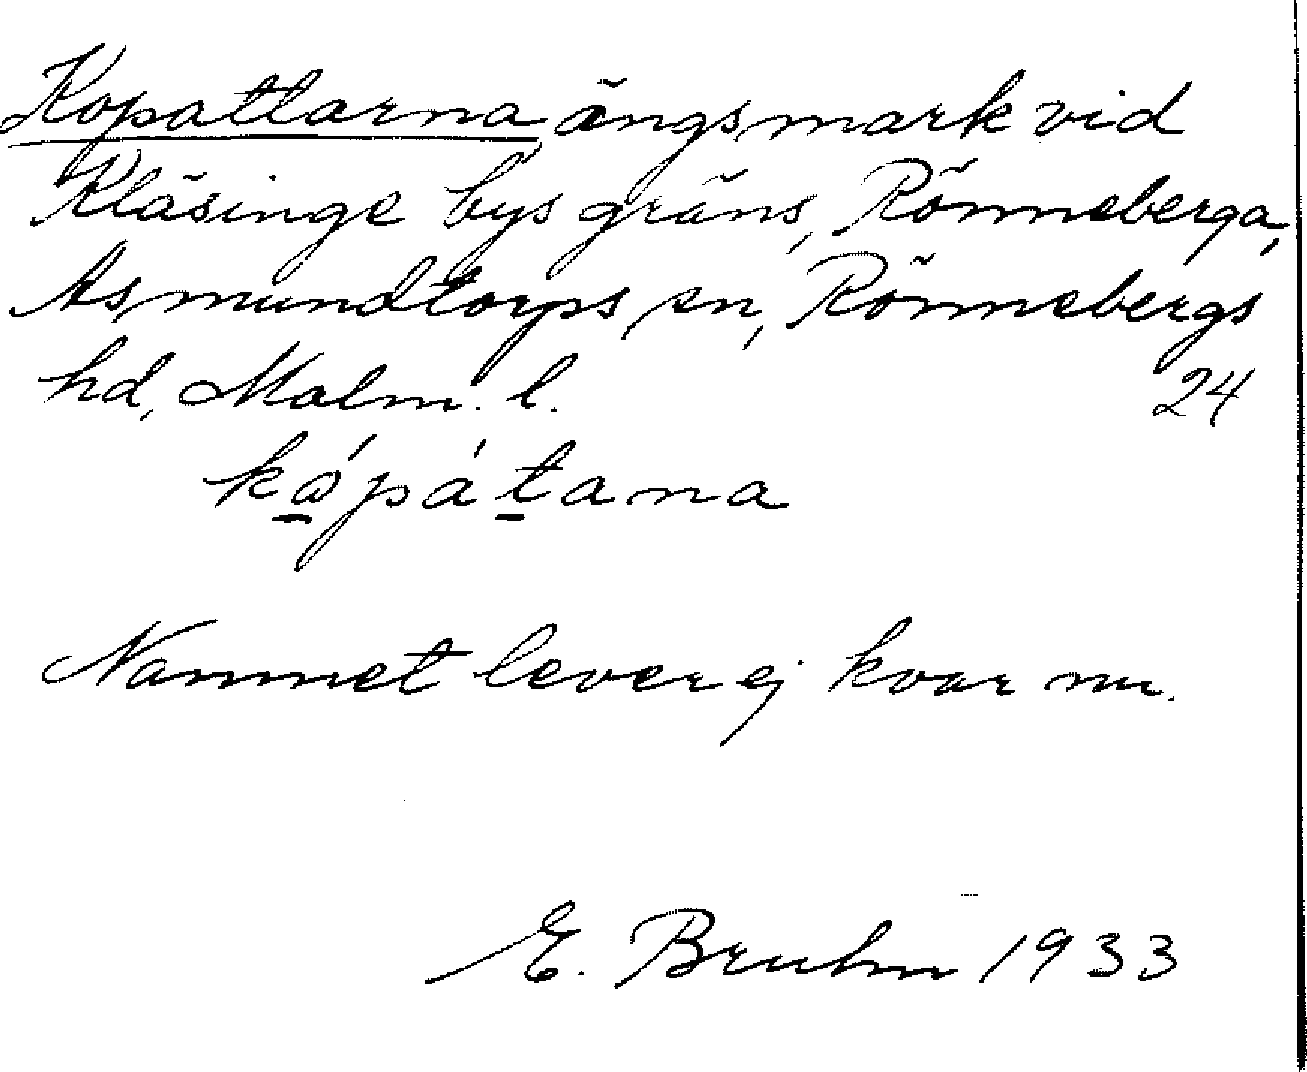 Kopattarna ängsmark vid
Kläsinge bys gräns, Rönneberga,
Asmundtorps sn, Rönnebergs
hd, Malm. l. 24
kǻpátana
Namnet lever ej kvar nu.
E. Bruhn 1933